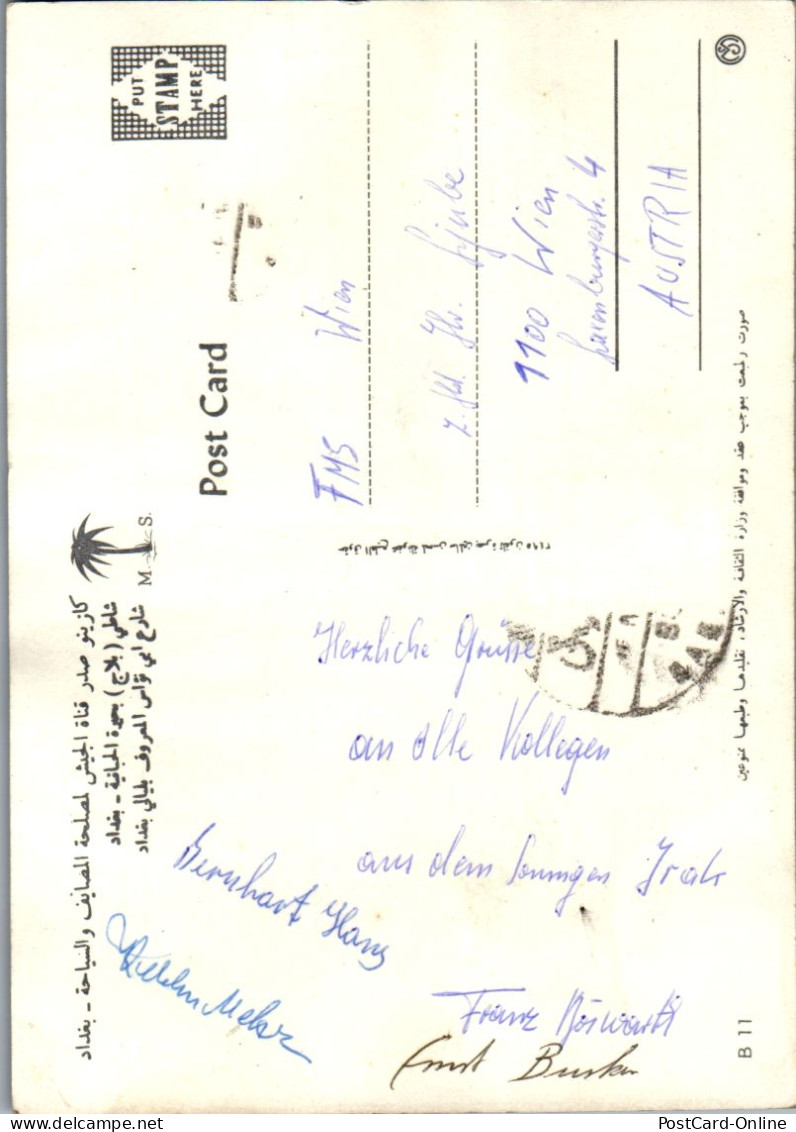 كازينو صدر قناة الجيش لمصلحة المصايف والسياحة - بغداد
شاطئ ( بلاج ) بحيرة الحبانية - بغداد
شارع ابي نؤاس المعروف بليالي بغداد
M. S.
PUT
STAMP
HERE
Post Card
Herzliche Grüsse
an alle Kollegen
aus dem sonnigen Irak
Bernhart Hans
Franz
Ernst
FMS Wien
z. Hd. Hr.
1100 Wien
Laxenburgerstr. 4
AUSTRIA
صورت وطبعت بموجب عقد وموافقة وزارة الثقافة والارشاد، تقليدها وطبعها ممنوعين
B 11
PostCard-Online